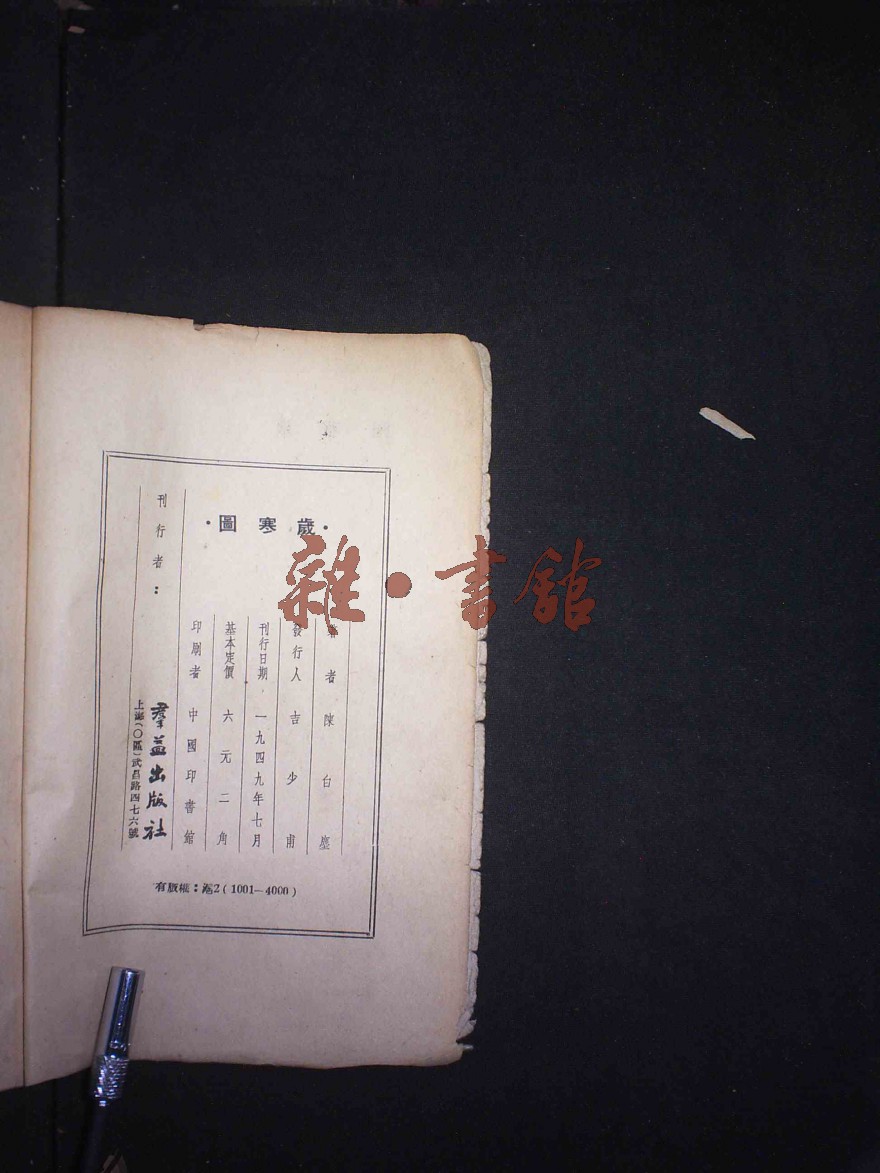 ·歲寒圖·
著者 陳白塵
發行人 吉少甫
刊行日期 一九四九年七月
基本定價 六元二角
印刷者 中國印書館
刊行者：
羣益出版社
上海(〇區)武昌路四七六號
有版權：滬2(1001—4000)
雜·書館